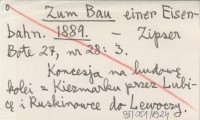 Zum Bau einer Eisen-
bahn. 1889. – Zipser
Bote 27, nr 28: 3.
Koncesja na budowę
kolei z Kiezmarku przez Lubi-
cę i Ruskinowce do Lewoczy.